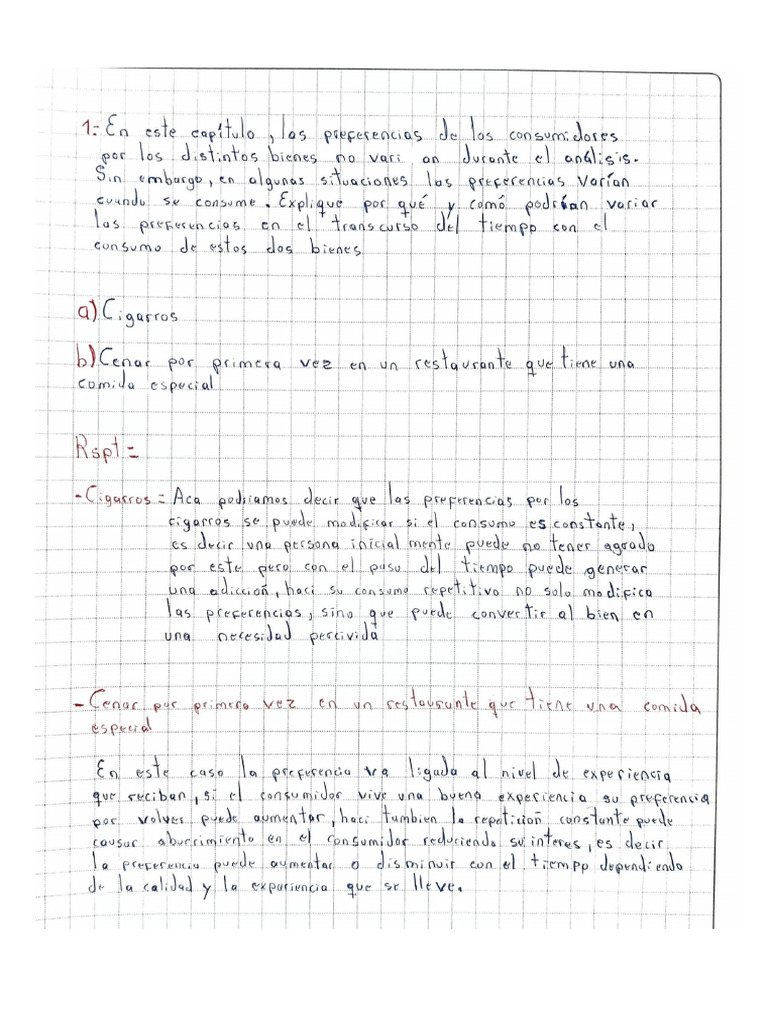 1= En este capítulo, las preferencias de los consumidores
por los distintos bienes no vari an durante el análisis.
Sin embargo, en algunas situaciones las preferencias varían
cuando se consume. Explique por qué y comó podrían variar
las preferencias en el transcurso del tiempo con el
consumo de estos dos bienes
a) Cigarros
b) Cenar por primera vez en un restaurante que tiene una
comida especial
Rspt=
- Cigarros = Aca podriamos decir que las preferencias por los
cigarros se puede modificar si el consumo es constante,
es decir una persona inicial mente puede no tener agrado
por este pero con el paso del tiempo puede generar
una adicción, haci su consumo repetitivo no solo modifica
las preferencias, sino que puede convertir al bien en
una necesidad percivida
- Cenar por primera vez en un restaurante que tiene una comida
especial
En este caso la preferencia va ligada al nivel de experiencia
que reciban, si el consumidor vive una buena experiencia su preferencia
por volver puede aumentar, haci tambien la repetición constante puede
causar aburrimiento en el consumidor reduciendo su interes, es decir
la preferencia puede aumentar o disminuir con el tiempo dependiendo
de la calidad y la experiencia que se lleve.